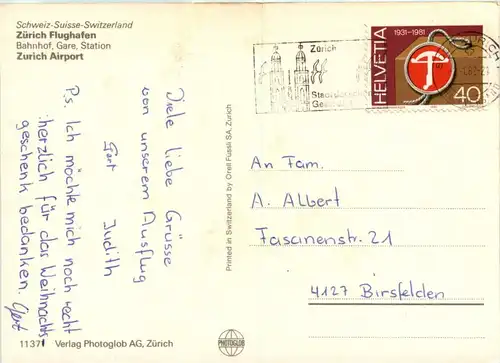 Schweiz-Suisse-Switzerland
Zürich Flughafen
Bahnhof, Gare, Station
Zurich Airport
Viele liebe Grüsse
von unserem Ausflug
Gert
Judith
P.s. Ich möchte mich noch recht
herzlich für das Weihnachts
geschenk bedanken. Gert
11371 Verlag Photoglob AG, Zürich
Printed in Switzerland by Orell Füssli SA, Zurich
PHOTOGLOB
Zürich
1931-1981
HELVETIA
40
ZÜRICH
An Fam.
A. Albert
Fasanenstr. 21
4127 Birsfelden